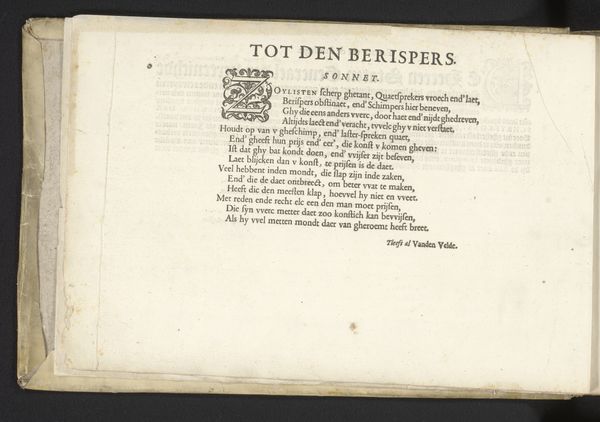 TOT DEN BERISPERS.
SONNET.
ZOYLISTEN scherp ghetant, Quaetsprekers vroech end' laet,
Berispers obstinaet, end' Schimpers hier beneven,
Ghy die eens anders vverc, door haet end' nijdt ghedreven,
Altijdts laect end' veracht, tvvelc ghy v niet verstaet.
Houdt op van v gheschimp, end' laster-spreken quaet,
End' gheeft hun prijs end' eer', die konst v komen gheven:
Ist dat ghy bat kondt doen, end' vvijser zijt beseven,
Laet blijcken dan v konst, te prijsen is de daet.
Veel hebbent inden mondt, die slap zijn inde zaken,
End' die de daet ontbreect, om beter vvat te maken,
Heeft dic den meesten klap, hoevvel hy niet en vveet.
Met reden ende recht elc een den man moet prijsen,
Die syn vverc metter daet zoo konstich kan bevvijsen,
Als hy vvel metten mondt daer van gheroemt heeft breet.
Tleeft al Vanden Velde.